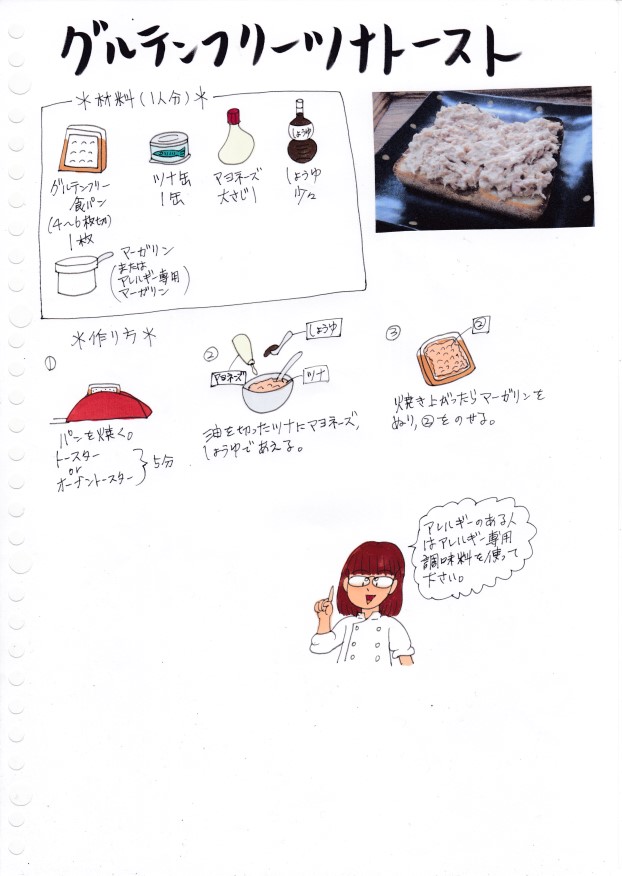 グルテンフリーツナトースト
＊材料(1人分)＊
グルテンフリー
食パン
(4〜6枚切)
1枚
ツナ缶
1缶
マヨネーズ
大さじ1
しょうゆ
しょうゆ
少々
マーガリン
(または
アレルギー専用
マーガリン)
＊作り方＊
①
パンを焼く。
トースター
or
オーブントースター
}5分
②
しょうゆ
マヨネーズ
ツナ
油を切ったツナにマヨネーズ,
しょうゆであえる。
③
②
焼き上がったらマーガリンを
ぬり,②をのせる。
アレルギーのある人
はアレルギー専用
調味料を使って
下さい。